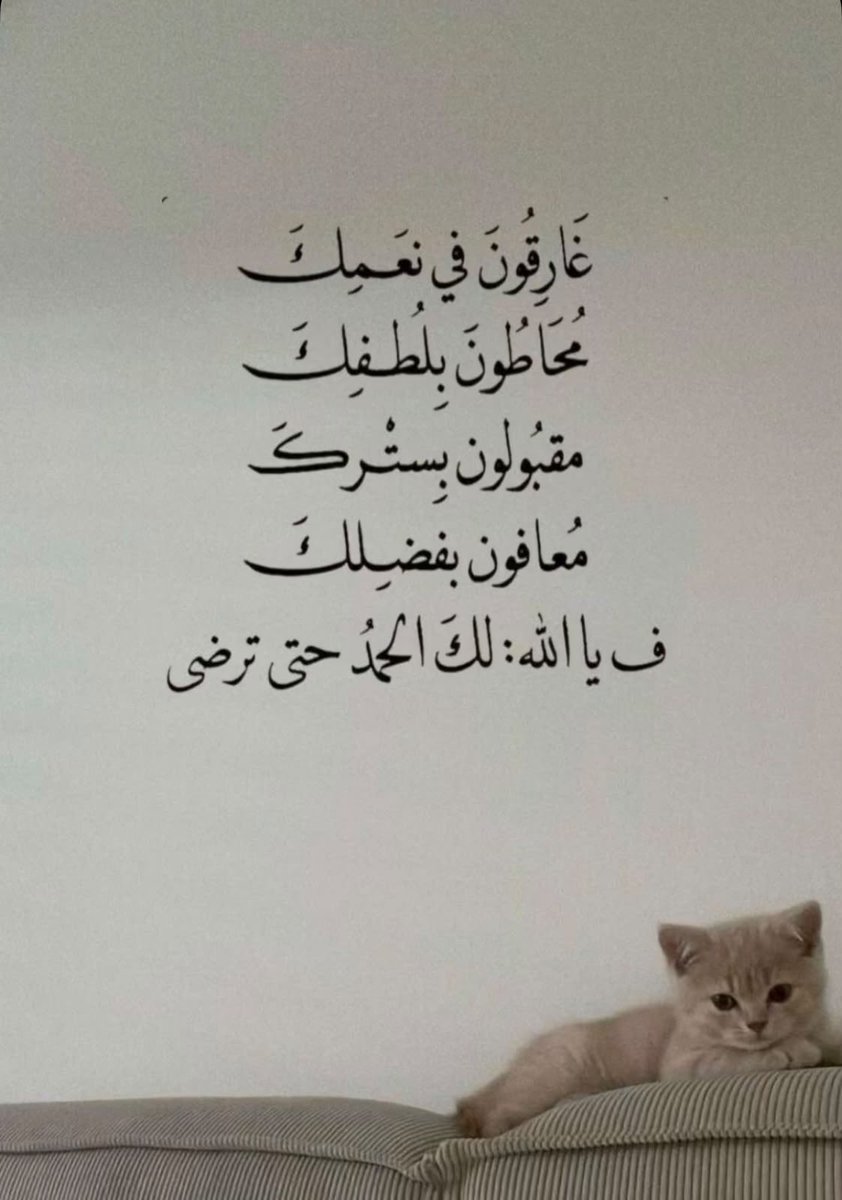 غَارِقُونَ في نعَمِكَ
مُحَاطُونَ بِلُطفِكَ
مقبُولون بِستْركَ
مُعافون بفضِلكَ
ف يا الله: لكَ الحمدُ حتى ترضى